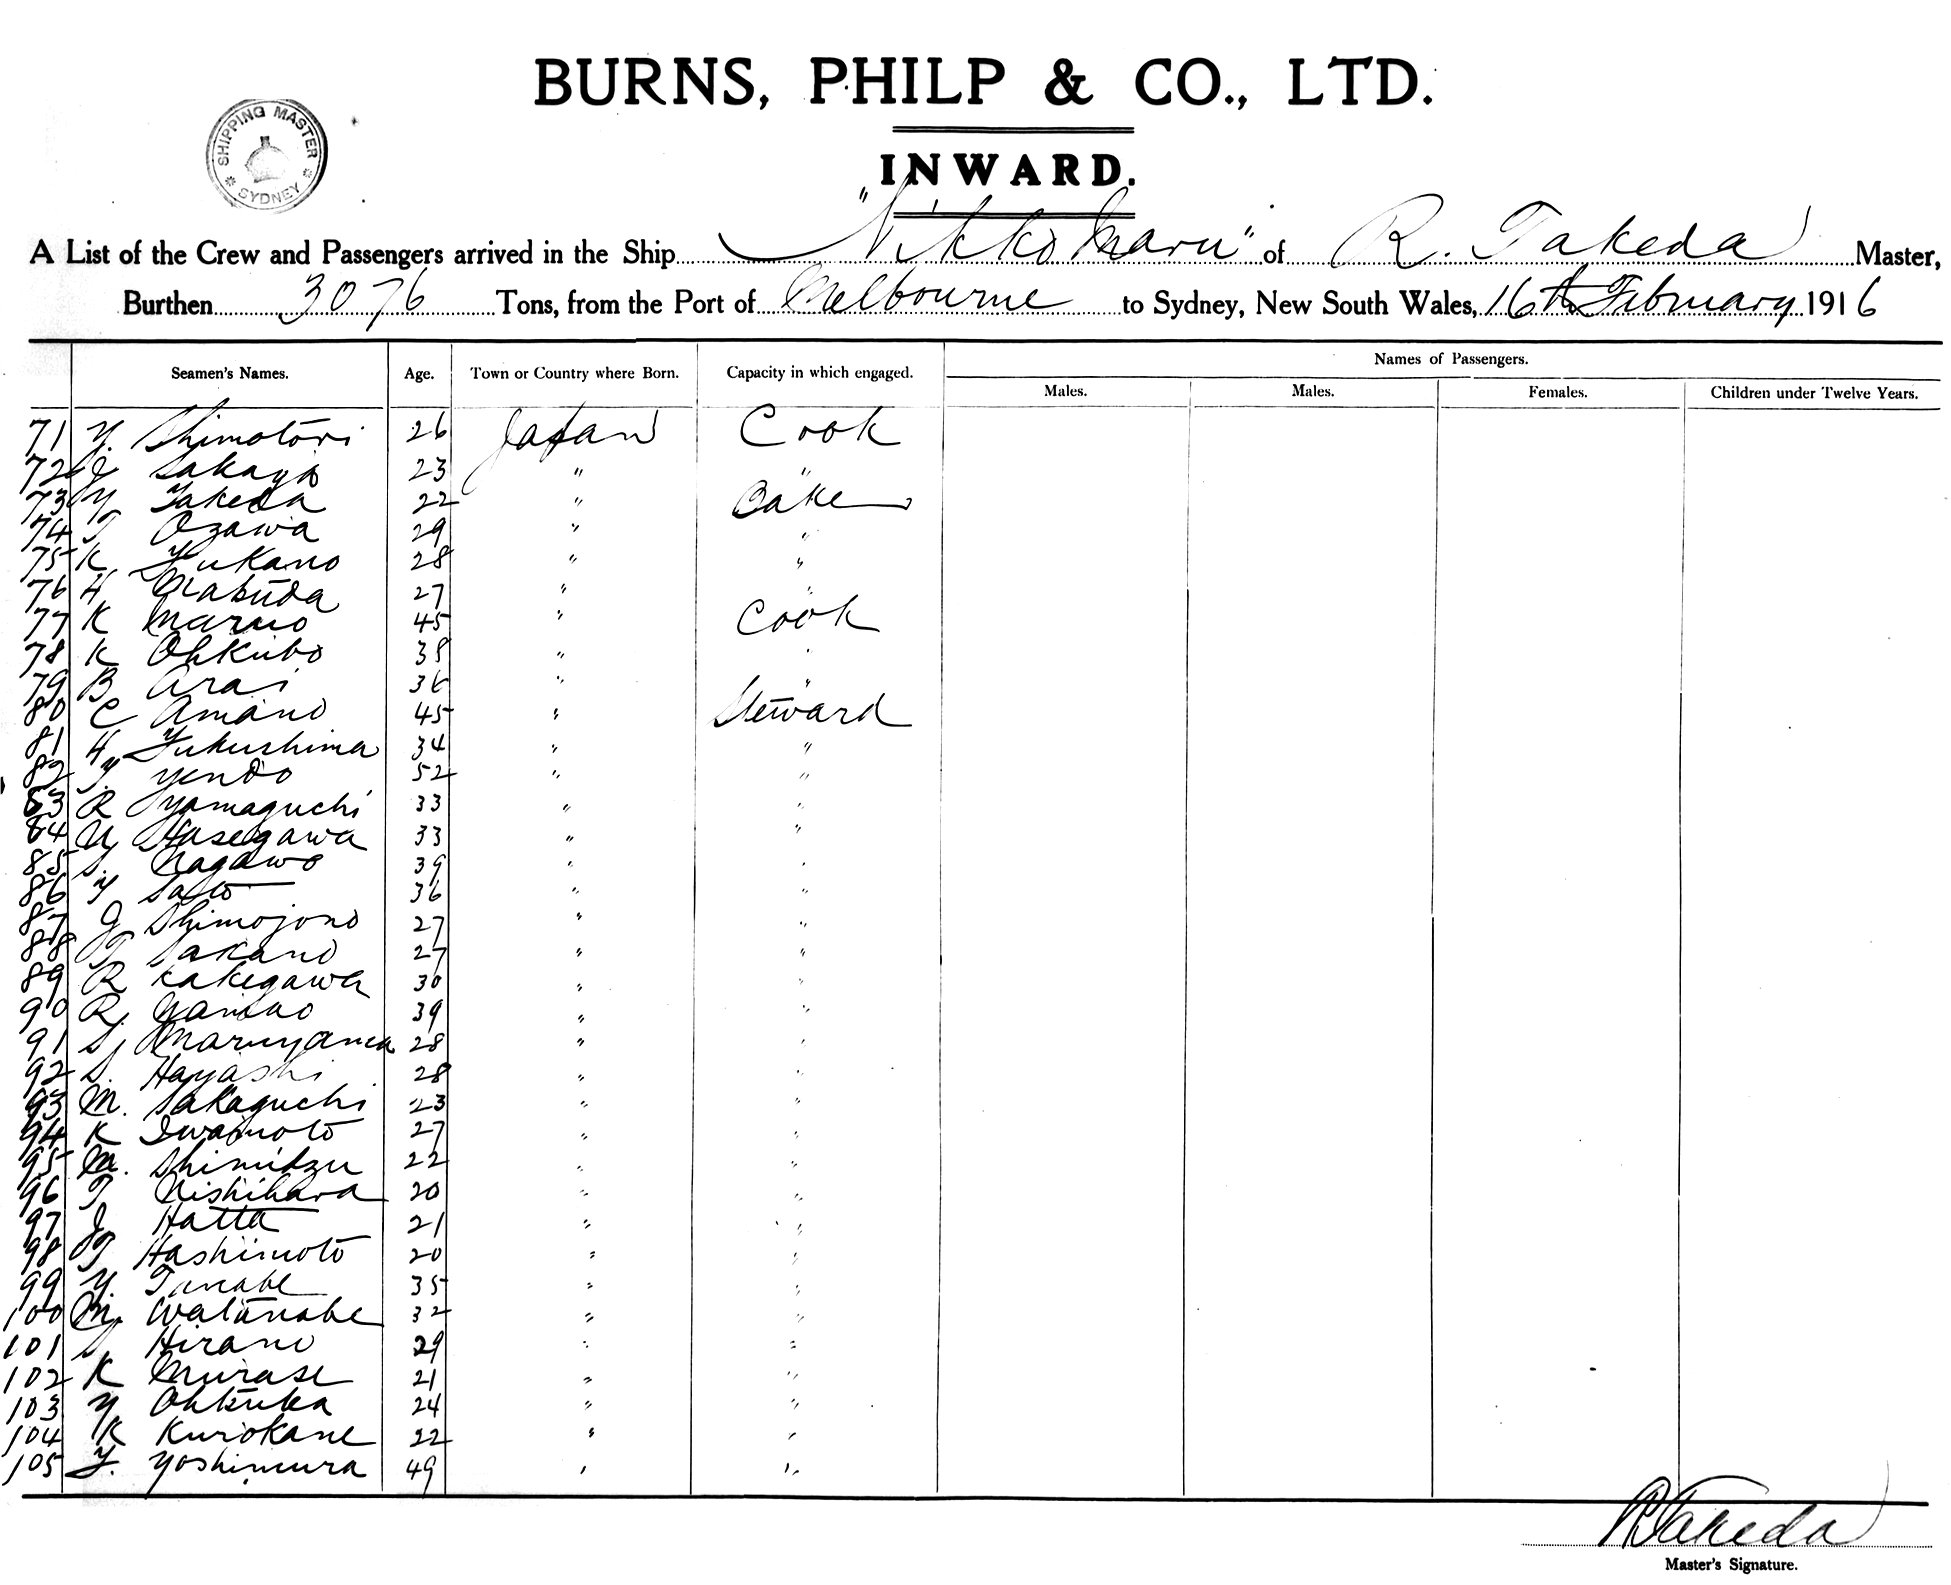 BURNS, PHILP & CO., LTD.
SHIPPING MASTER
SYDNEY
INWARD.
A List of the Crew and Passengers arrived in the Ship "Nikko Maru" of R. Takeda Master,
Burthen 3076 Tons, from the Port of Melbourne to Sydney, New South Wales, 16th February 1916
Names of Passengers.
Seamen's Names. Age. Town or Country where Born. Capacity in which engaged. Males. Males. Females. Children under Twelve Years.
71 Y. Shimotori 26 Japan Cook
72 J Sakaya 23 " "
73 Y Takeda 22 " Baker
74 T Ozawa 29 " "
75 K Fukano 28 " "
76 H Matsuda 27 " "
77 K Maruo 45 " Cook
78 K Ohkubo 38 " "
79 B Arai 36 " "
80 C Amano 45 " Steward
81 H Fukushima 34 " "
82 T. Yendo 52 " "
83 R Yamaguchi 33 " "
84 U Hasegawa 33 " "
85 S. Nagawo 39 " "
86 Y Saito 36 " "
87 J Shimojono 27 " "
88 T Sakano 27 " "
89 R Kakegawa 30 " "
90 R. 39 " "
91 S. Maruyama 28 " "
92 S. Hayashi 28 " "
93 M. Sakaguchi 23 " "
94 K Iwamoto 27 " "
95 M. Shimidzu 22 " "
96 T Nishihara 20 " "
97 J Hatta 21 " "
98 T Hashimoto 20 " "
99 Y. Tanabe 35 " "
100 M. Watanabe 32 " "
101 S Hirano 29 " "
102 K Murase 21 " "
103 Y Ohtsuka 24 " "
104 K Kurokane 22 " "
105 Y. Yoshimura 49 " "
R Takeda
Master's Signature.